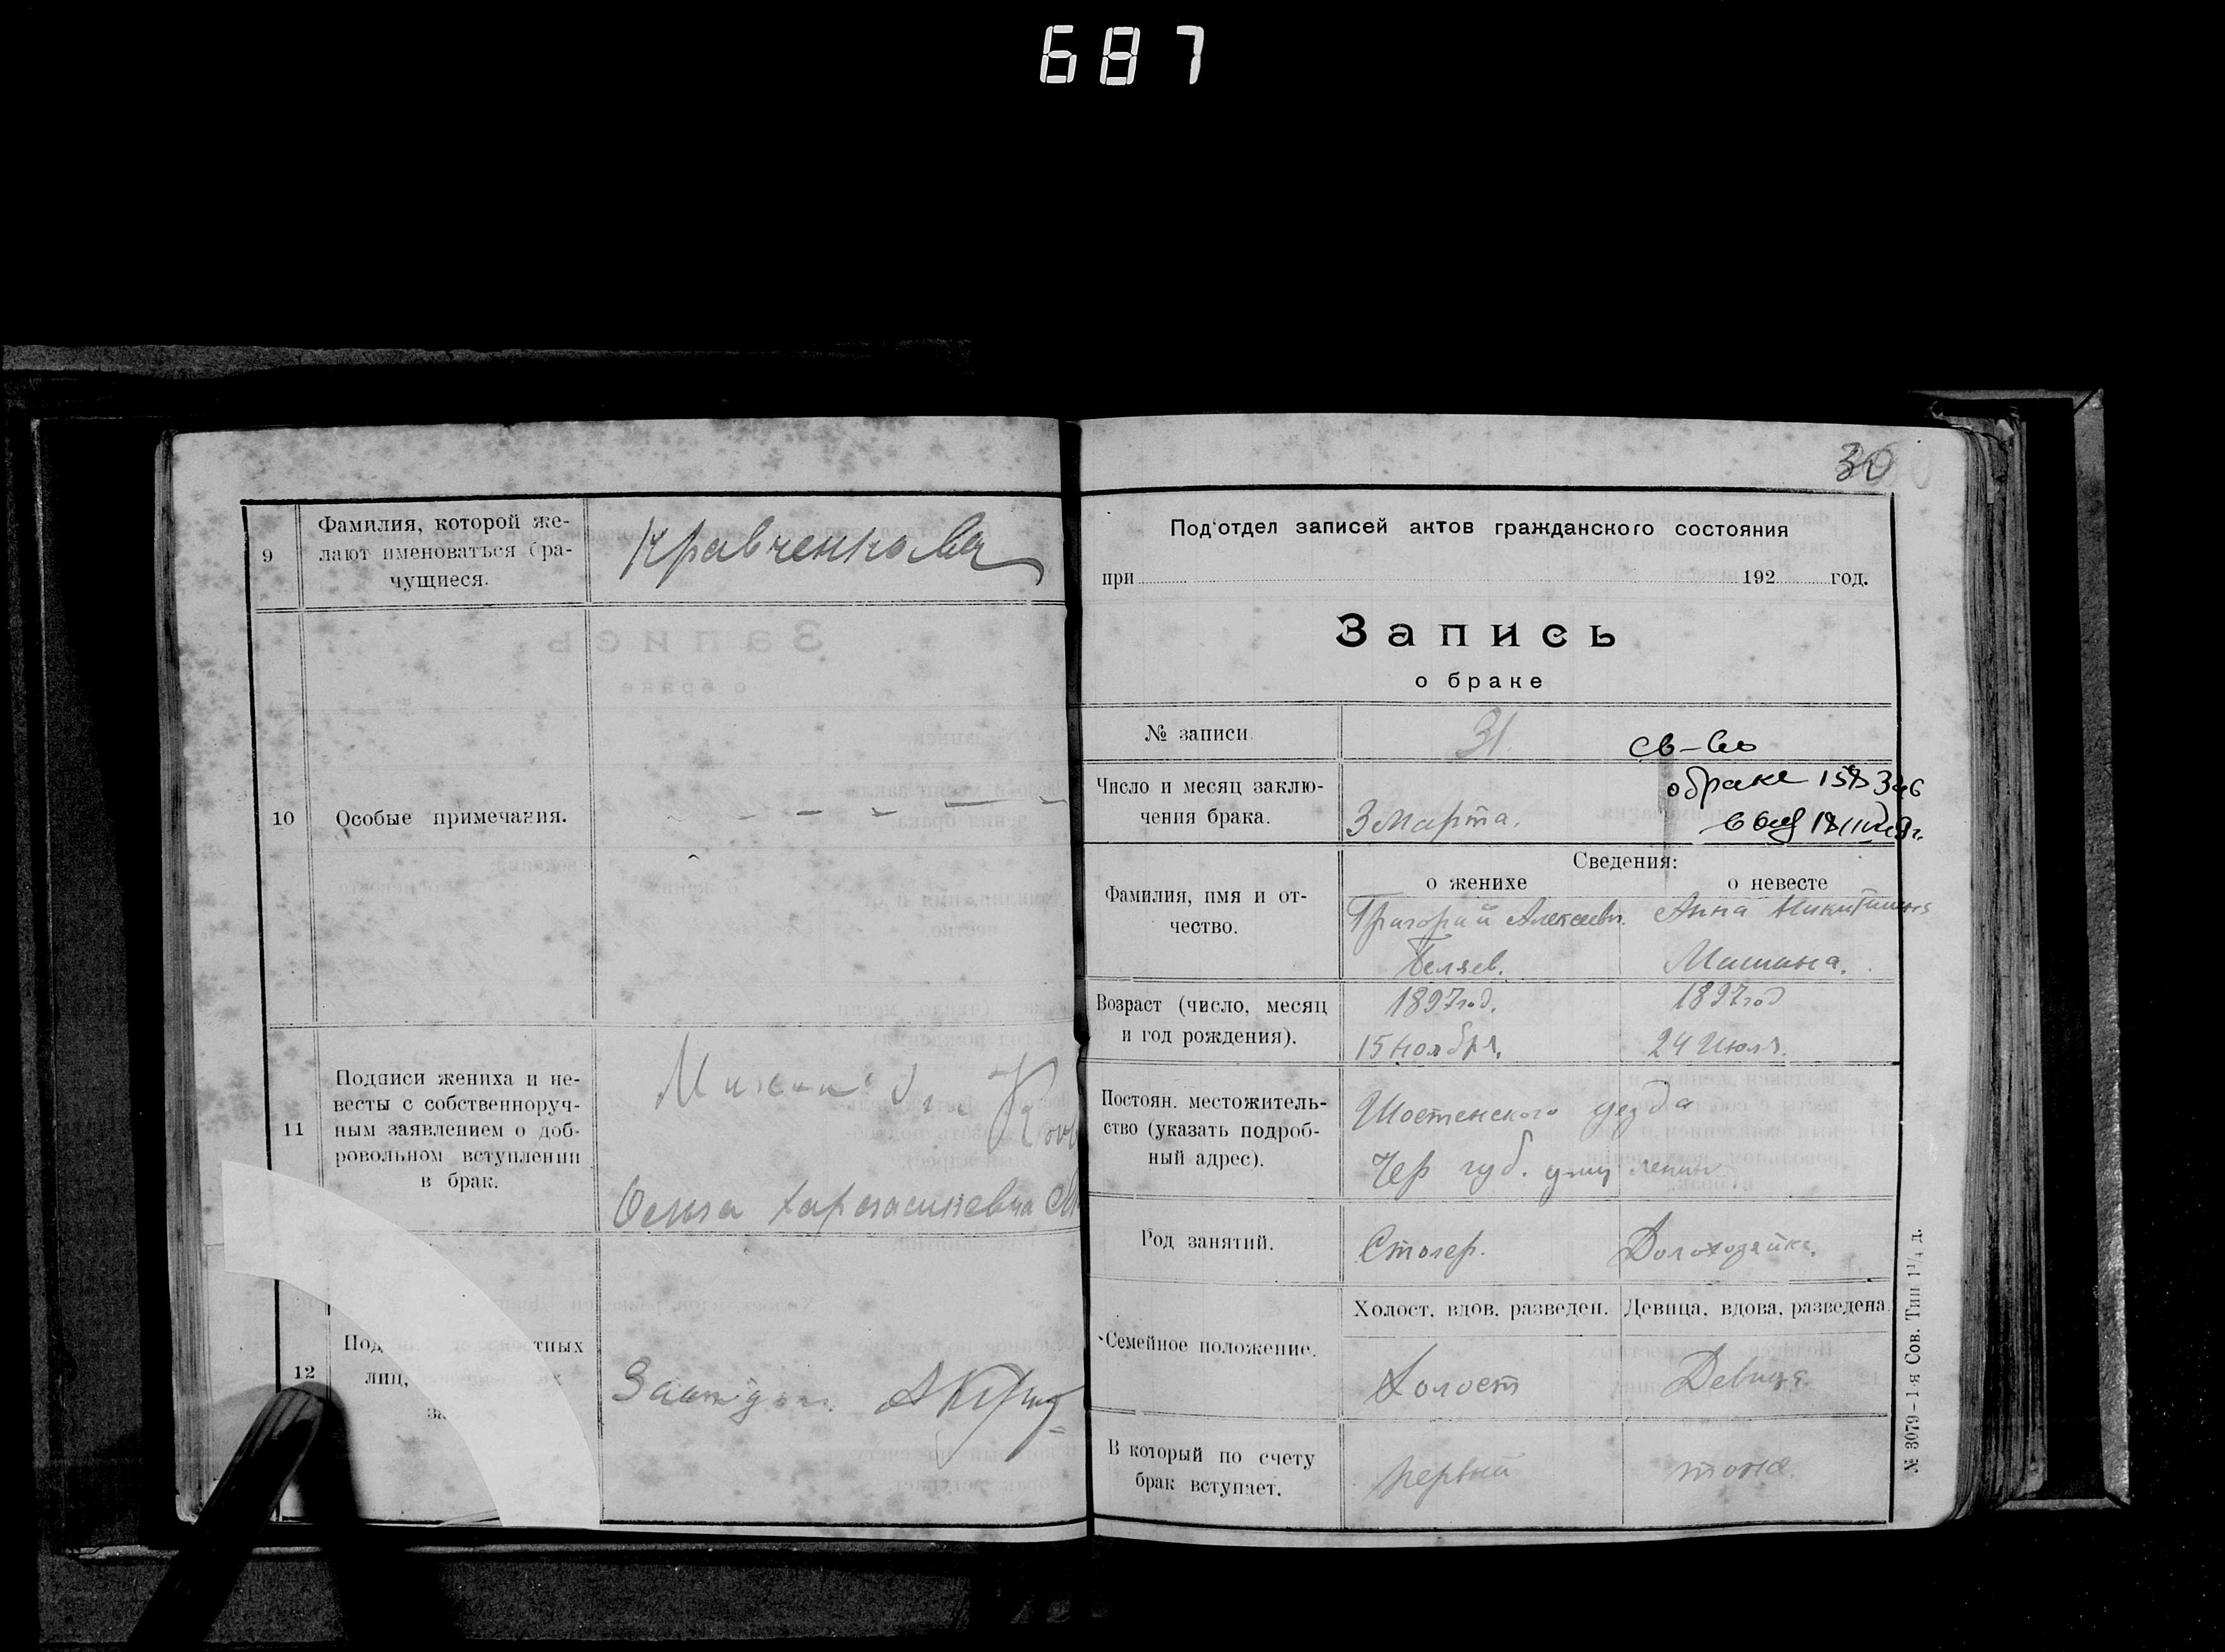 687
9
Фамилия, которой же-
лают именоваться бра-
чущиеся.
Кравченкова
10
Особые примечания.
11
Подписи жениха и не-
весты с собственноруч-
ным заявлением о доб-
ровольном вступлении
в брак.
Ольга
12
Под тных
лиц,
за
30
Под'отдел записей актов гражданского состояния
при 192 год.
Запись
о браке
№ записи
31.
св-во
Число и месяц заклю-
чения брака.
3 Марта.
о браке
Сведения:
о женихе
о невесте
Фамилия, имя и от-
чество.
Григорий Алексеев.
Беляев.
Анна Никитишна
Мишина.
Возраст (число, месяц
и год рождения).
1897 год.
15 ноября.
1897 год
24 Июля.
Постоян. местожитель-
ство (указать подроб-
ный адрес).
Шостенского уезда
Чер губ. улиц Ленин
Род занятий.
Столер.
Домохозяйка.
Семейное положение.
Холост, вдов, разведен.
Девица, вдова, разведена.
Холост
Девица
В который по счету
брак вступает.
первый
тоже.
№ 3079 – 1-я Сов. Тип 1¹/₄ д.